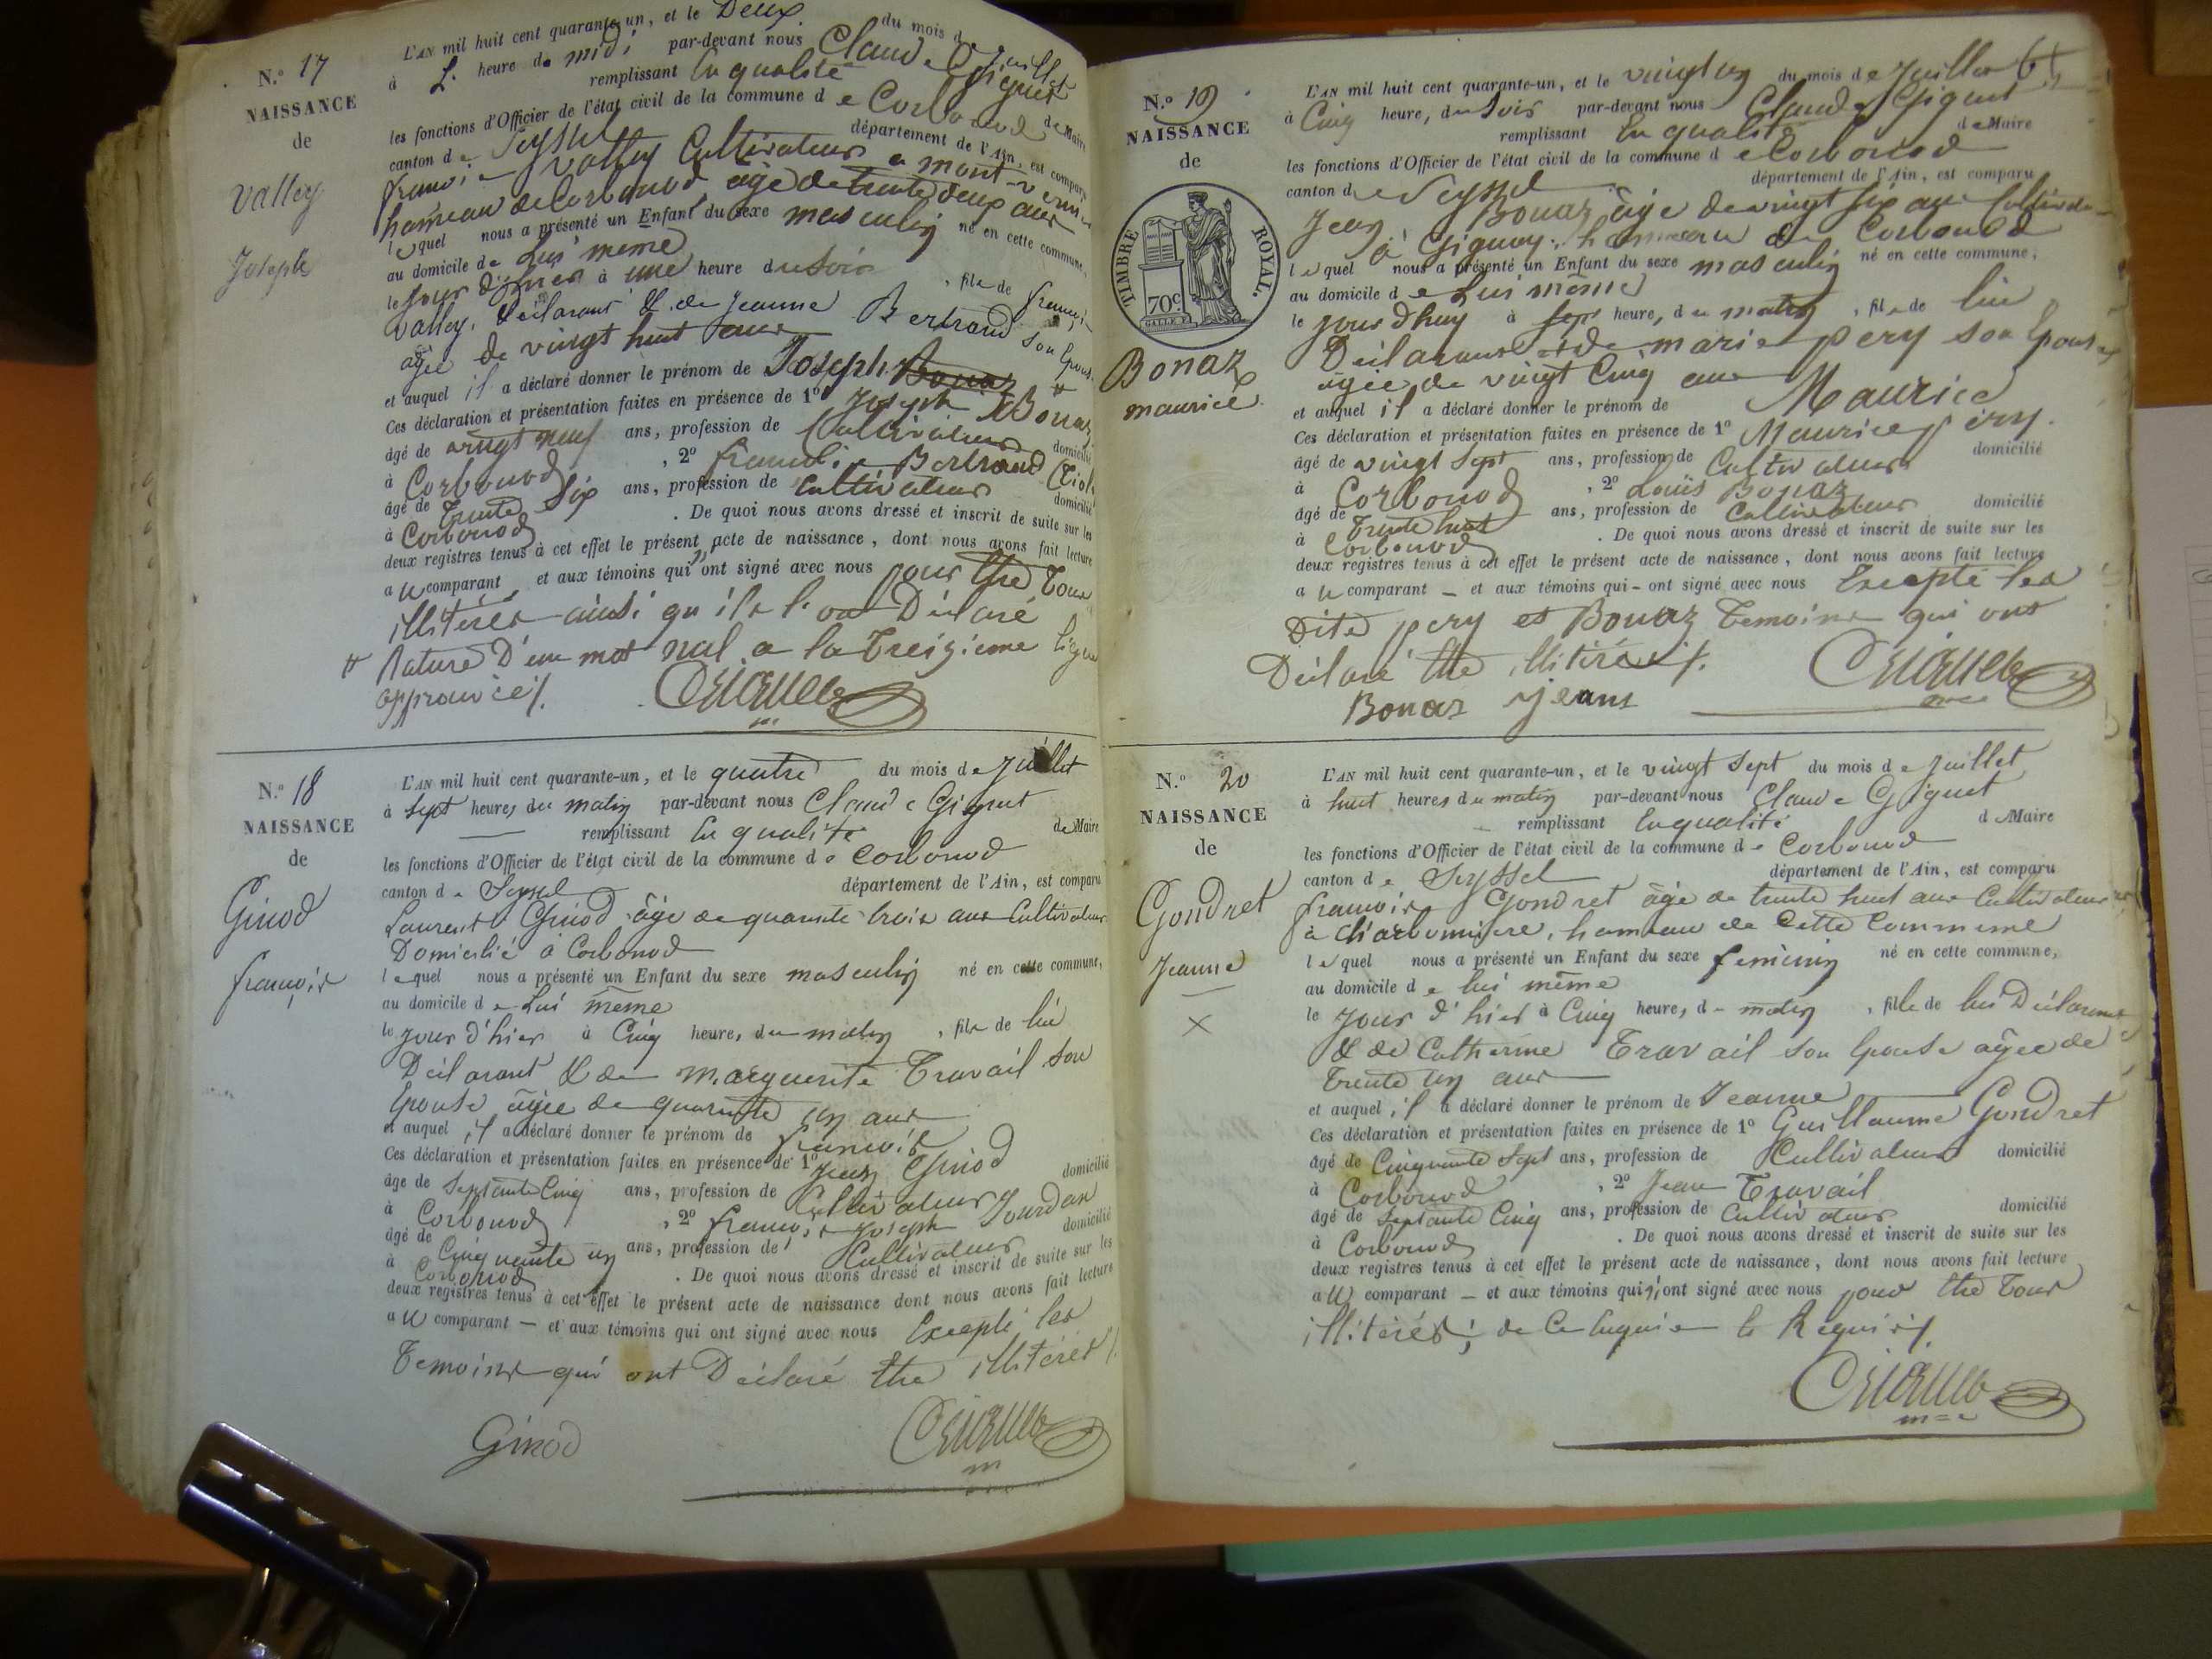 N.º 17
NAISSANCE
de
Valley
Joseph
L'AN mil huit cent quarante-un, et le Deux du mois de Juillet
à L' heure de midi par-devant nous Claude Giguet
remplissant En qualité de Maire
les fonctions d'Officier de l'état civil de la commune de Corbonod
canton de Seyssel département de l'Ain, est comparu
françois Valley Cultivateur a mont-
hameau de Corbonod, âgé de trente deux ans
lequel nous a présenté un Enfant du sexe masculin né en cette commune,
au domicile de Lui meme
le jour d'hier à une heure du Soir, fils de françois
Valley, déclarant & de Jeanne Bertrand son Epouse
agée de vingt huit ans
et auquel il a déclaré donner le prénom de Joseph Bonaz #
Ces déclaration et présentation faites en présence de 1º Joseph Bonaz
âgé de vingt neuf ans, profession de Cultivateur domicilié
à Corbonod, 2º françois Bertrand
âgé de Trente Six ans, profession de Cultivateur domicilié
à Corbonod. De quoi nous avons dressé et inscrit de suite sur les
deux registres tenus à cet effet le présent acte de naissance, dont nous avons fait lecture
au comparant et aux témoins qui n'ont signé avec nous pour Etre Tous
illitérés ainsi qu'ils l'ont Déclaré
# Rature D'un mot nul a la Treizieme ligne
approuvée/.
N.º 18
NAISSANCE
de
Ginod
françois
L'AN mil huit cent quarante-un, et le quatre du mois de Juillet
à Sept heures du matin par-devant nous Claude Giguet
remplissant En qualité de Maire
les fonctions d'Officier de l'état civil de la commune de Corbonod
canton de Seyssel département de l'Ain, est comparu
Laurent Ginod âgé de quarante trois ans Cultivateur
Domicilié à Corbonod
lequel nous a présenté un Enfant du sexe masculin né en cette commune,
au domicile de Lui même
le jour d'hier à Cinq heure, du matin, fils de lui
Déclarant & de marguerite Travail son
Epouse âgée de quarante un ans
et auquel il a déclaré donner le prénom de françois
Ces déclaration et présentation faites en présence de 1º Jean Ginod
âgé de Septante Cinq ans, profession de Cultivateur domicilié
à Corbonod, 2º françois Joseph Jourdan
âgé de Cinquante un ans, profession de Cultivateur domicilié
à Corbonod. De quoi nous avons dressé et inscrit de suite sur les
deux registres tenus à cet effet le présent acte de naissance dont nous avons fait lecture
au comparant — et aux témoins qui ont signé avec nous Excepté les
Temoins qui ont Déclaré Etre illitérés/.
Ginod
N.º 19
NAISSANCE
de
TIMBRE ROYAL.
70c.
Bonaz
maurice
L'AN mil huit cent quarante-un, et le vingt un du mois de Juillet
à Cinq heure, du Soir par-devant nous Claude Giguet
remplissant En qualité de Maire
les fonctions d'Officier de l'état civil de la commune de Corbonod
canton de Seyssel département de l'Ain, est comparu
Jean Bonaz âgé de vingt six ans Cultivateur
à Gignez, hameau de Corbonod
lequel nous a présenté un Enfant du sexe masculin né en cette commune,
au domicile de Lui meme
le jour d'huy à Sept heure, du matin, fils de lui
Déclarant et de marie pery son Epouse
âgée de vingt Cinq ans
et auquel il a déclaré donner le prénom de Maurice
Ces déclaration et présentation faites en présence de 1º Maurice péry.
âgé de vingt Sept ans, profession de Cultivateur domicilié
à Corbonod, 2º Louis Bonaz
âgé de Trente huit ans, profession de Cultivateur domicilié
à Corbonod. De quoi nous avons dressé et inscrit de suite sur les
deux registres tenus à cet effet le présent acte de naissance, dont nous avons fait lecture
au comparant — et aux témoins qui - ont signé avec nous Excepté les
Dits pery et Bonaz Temoins qui ont
Déclaré Etre illitérés/.
Bonaz jeans
N.º 20
NAISSANCE
de
Gondret
Jeanne
L'AN mil huit cent quarante-un, et le vingt sept du mois de Juillet
à huit heures du matin par-devant nous Claude Giguet
remplissant En qualité de Maire
les fonctions d'Officier de l'état civil de la commune de Corbonod
canton de Seyssel département de l'Ain, est comparu
françois Gondret âgé de trente huit ans Cultivateur
à Charbonnière, hameau de Cette Commune
lequel nous a présenté un Enfant du sexe feminin né en cette commune,
au domicile de lui même
le jour d'hier à Cinq heure, du matin, fille de lui Déclarant
& de Catherine Travail son Epouse âgée de
Trente un ans
et auquel il a déclaré donner le prénom de Jeanne
Ces déclaration et présentation faites en présence de 1º Guillaume Gondret
âgé de Cinquante Sept ans, profession de Cultivateur domicilié
à Corbonod, 2º Jean Travail
âgé de Septante Cinq ans, profession de Cultivateur domicilié
à Corbonod. De quoi nous avons dressé et inscrit de suite sur les
deux registres tenus à cet effet le présent acte de naissance, dont nous avons fait lecture
au comparant — et aux témoins qui n'ont signé avec nous pour Etre Tous
illitérés; de Ce Enquis & Requis/.